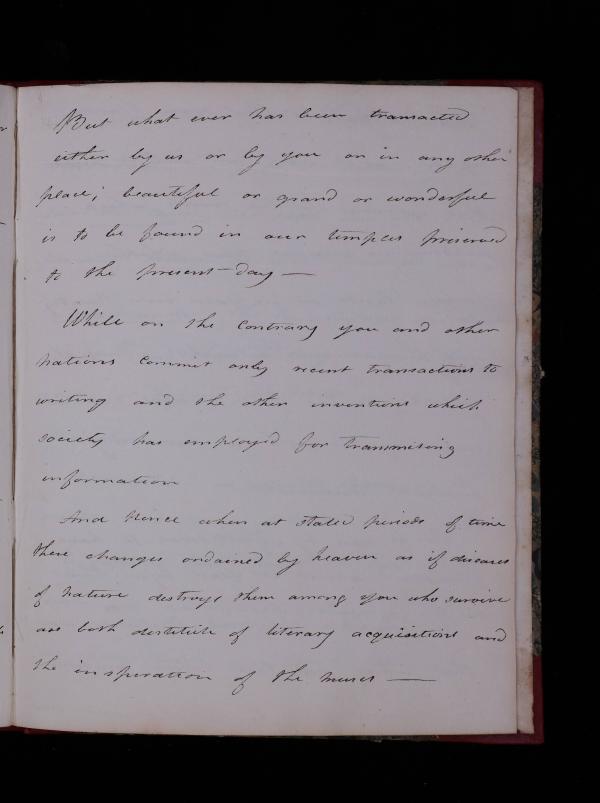 But what ever has been transacted
either by us or by you or in any other
place; beautiful or grand or wonderful
is to be found in our temples preserved
to the present day —
While on the contrary you and other
nations commit only recent transactions to
writing and the other inventions which
society has employed for transmitting
information
And hence when at stated periods of time
these changes ordained by heaven as if diseases
of nature destroys them among you who survive
are both destitute of literary acquisitions and
the insperation of the muses —